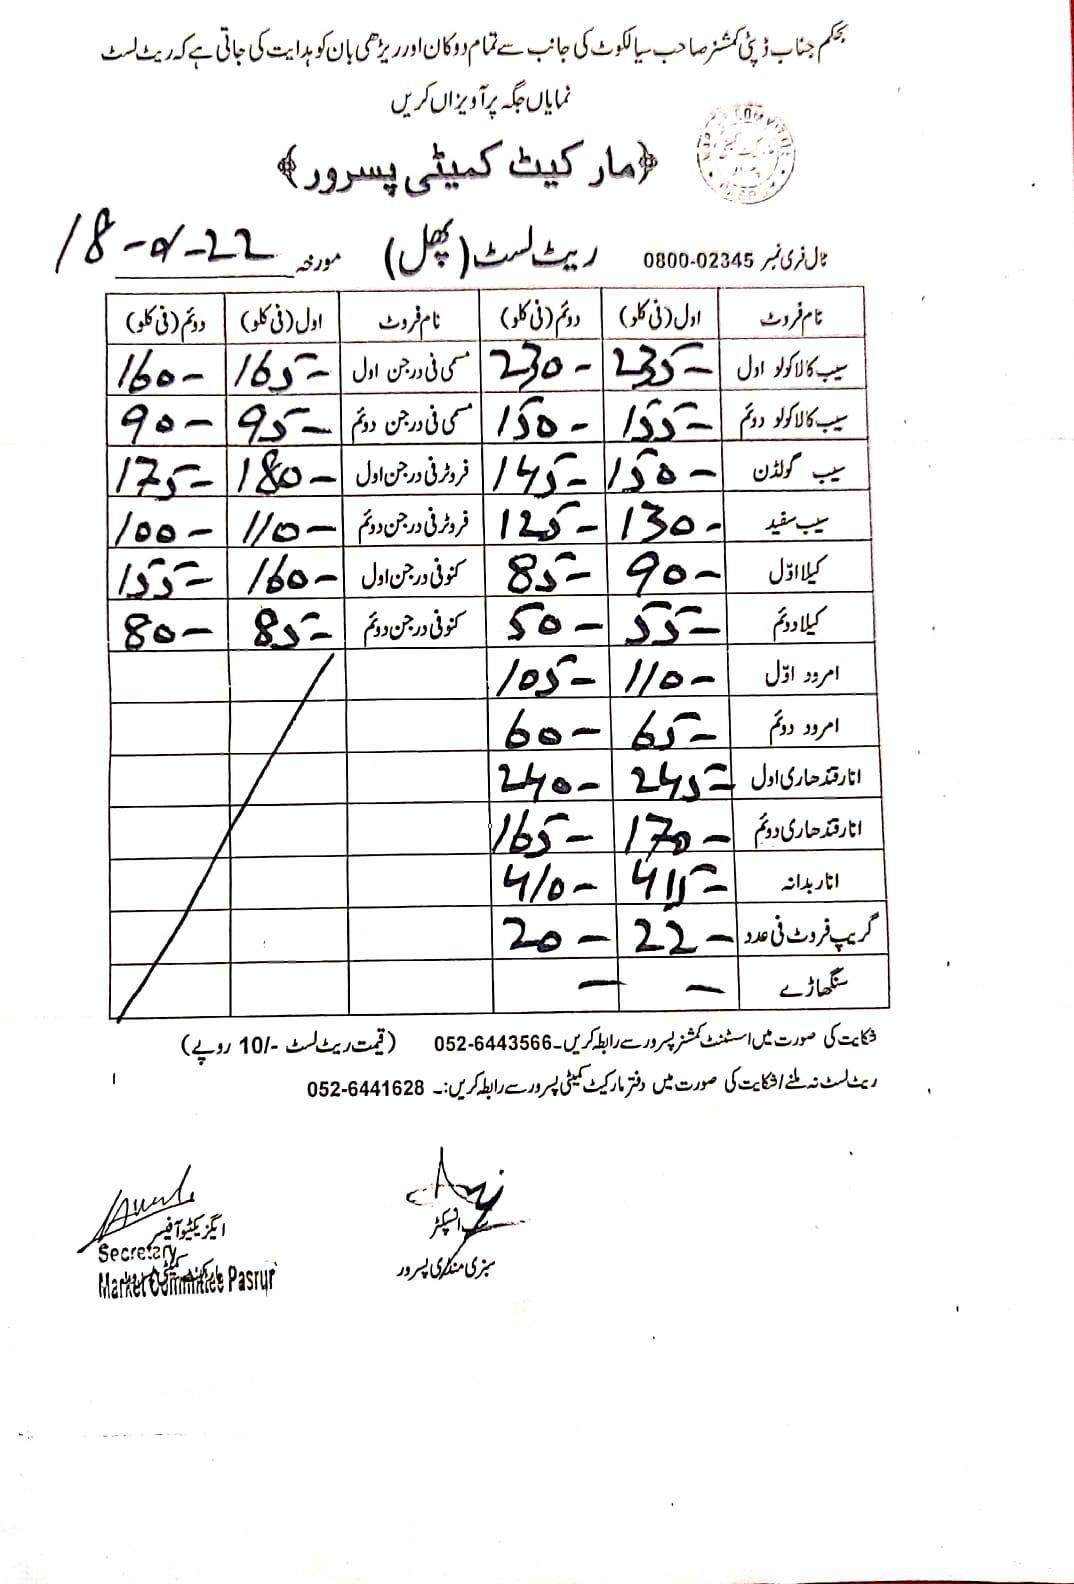 بحکم جناب ڈپٹی کمشنر صاحب سیالکوٹ کی جانب سے تمام دوکان اور ریڑھی بان کو ہدایت کی جاتی ہے کہ ریٹ لسٹ
نمایاں جگہ پر آویزاں کریں
﴿مارکیٹ کمیٹی پسرور﴾
ٹال فری نمبر 0800-02345 ریٹ لسٹ (پھل) مورخہ
نام فروٹ اول (فی کلو) دوئم (فی کلو) نام فروٹ اول (فی کلو) دوئم (فی کلو)
سیب کالا کولو اول 235- 230- مسمی فی درجن اول 165- 160-
سیب کالا کولو دوئم 155- 150- مسمی فی درجن دوئم 95- 90-
سیب گولڈن 150- 145- فروٹر فی درجن اول 180- 175-
سیب سفید 130- 125- فروٹر فی درجن دوئم 110- 100-
کیلا اوّل 90- 85- کنو فی درجن اول 160- 155-
کیلا دوئم 55- 50- کنو فی درجن دوئم 85- 80-
امرود اوّل 110- 105-
امرود دوئم 65- 60-
انار قندھاری اول 245- 240-
انار قندھاری دوئم 170- 165-
انار بدانہ 410-
گریپ فروٹ فی عدد 22- 20-
سنگھاڑے - -
شکایت کی صورت میں اسسٹنٹ کمشنر پسرور سے رابطہ کریں۔ 052-6443566 (قیمت ریٹ لسٹ -/10 روپے)
ریٹ لسٹ نہ ملنے / شکایت کی صورت میں دفتر مارکیٹ کمیٹی پسرور سے رابطہ کریں:۔ 052-6441628
سب انسپکٹر
سبزی منڈی پسرور
ایگزیکٹو آفیسر
Secretary
Market Committee Pasrur